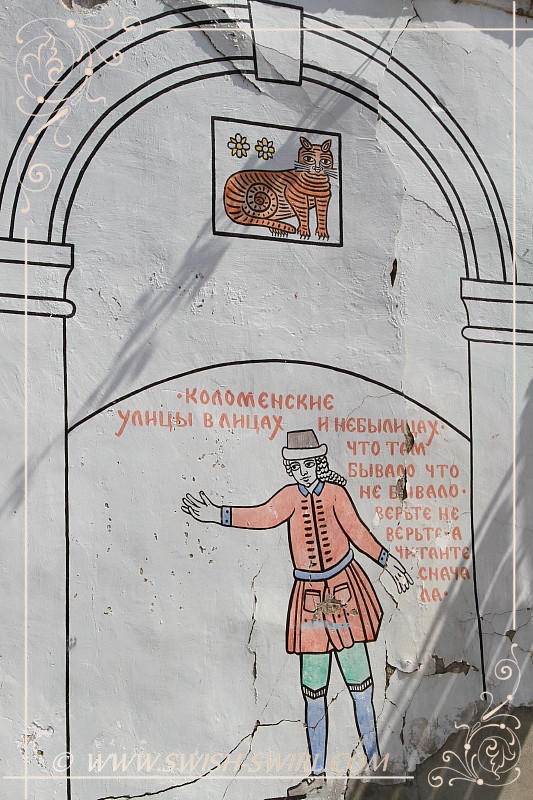 ·КОЛОМЕНСКИЕ
УЛИЦЫ В ЛИЦАХ И НЕБЫЛИЦАХ·
ЧТО ТАМ
БЫВАЛО ЧТО
НЕ БЫВАЛО·
ВЕРЬТЕ НЕ
ВЕРЬТЕ·А
ЧИТАИТЕ
СНАЧА
ЛА·
© WWW.SWISH-SWIRL.COM